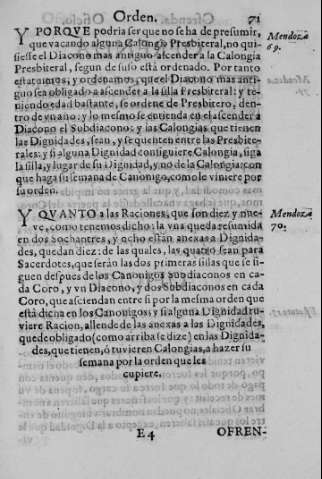 Orden. 71
Y PORQVE podria ser que no se ha de presumir,
que vacando alguna Calongia Presbiteral, no qui-
siesse el Diacono mas antiguo ascender a la Calongia
Presbiteral, segun de suso està ordenado. Por tanto
estatuimos, y ordenamos, que el Diacono mas anti-
guo sea obligado a ascender a la silla Presbiteral: y te-
niendo edad bastante, se ordene de Presbitero, den-
tro de vn año: y lo mesmo se entienda en el ascender a
Diacono el Subdiacono: y las Calongias que tienen
las Dignidades, sean, y se quenten entre las Presbite-
rales: y si alguna Dignidad consiguiere Calongia, siga
la silla, y lugar de su Dignidad, y no de la Calongia: con
que haga su semana de Canonigo, como le viniere por
su orden.
Mendoza
69.
Y QVANTO a las Raciones, que son diez y nue-
ve, como tenemos dicho: la vna queda resumida
en dos Sochantres, y ocho estàn anexas a Dignida-
des, quedan diez: de las quales, las quatro sean para
Sacerdotes, que seràn las dos primeras sillas que se si-
guen despues de los Canonigos Subdiaconos en ca-
da Coro, y vn Diacono, y dos Subdiaconos en cada
Coro, que asciendan entre si por la mesma orden que
està dicha en los Canonigos: y si alguna Dignidad tu-
viere Racion, allende de las anexas a las Dignidades,
quede obligado (como arriba se dize) en las Dignida-
des, que tienen, ò tuvieren Calongias, a hazer su
semana por la orden que les
cupiere.
Mendoza
70.
E4 OFREN-